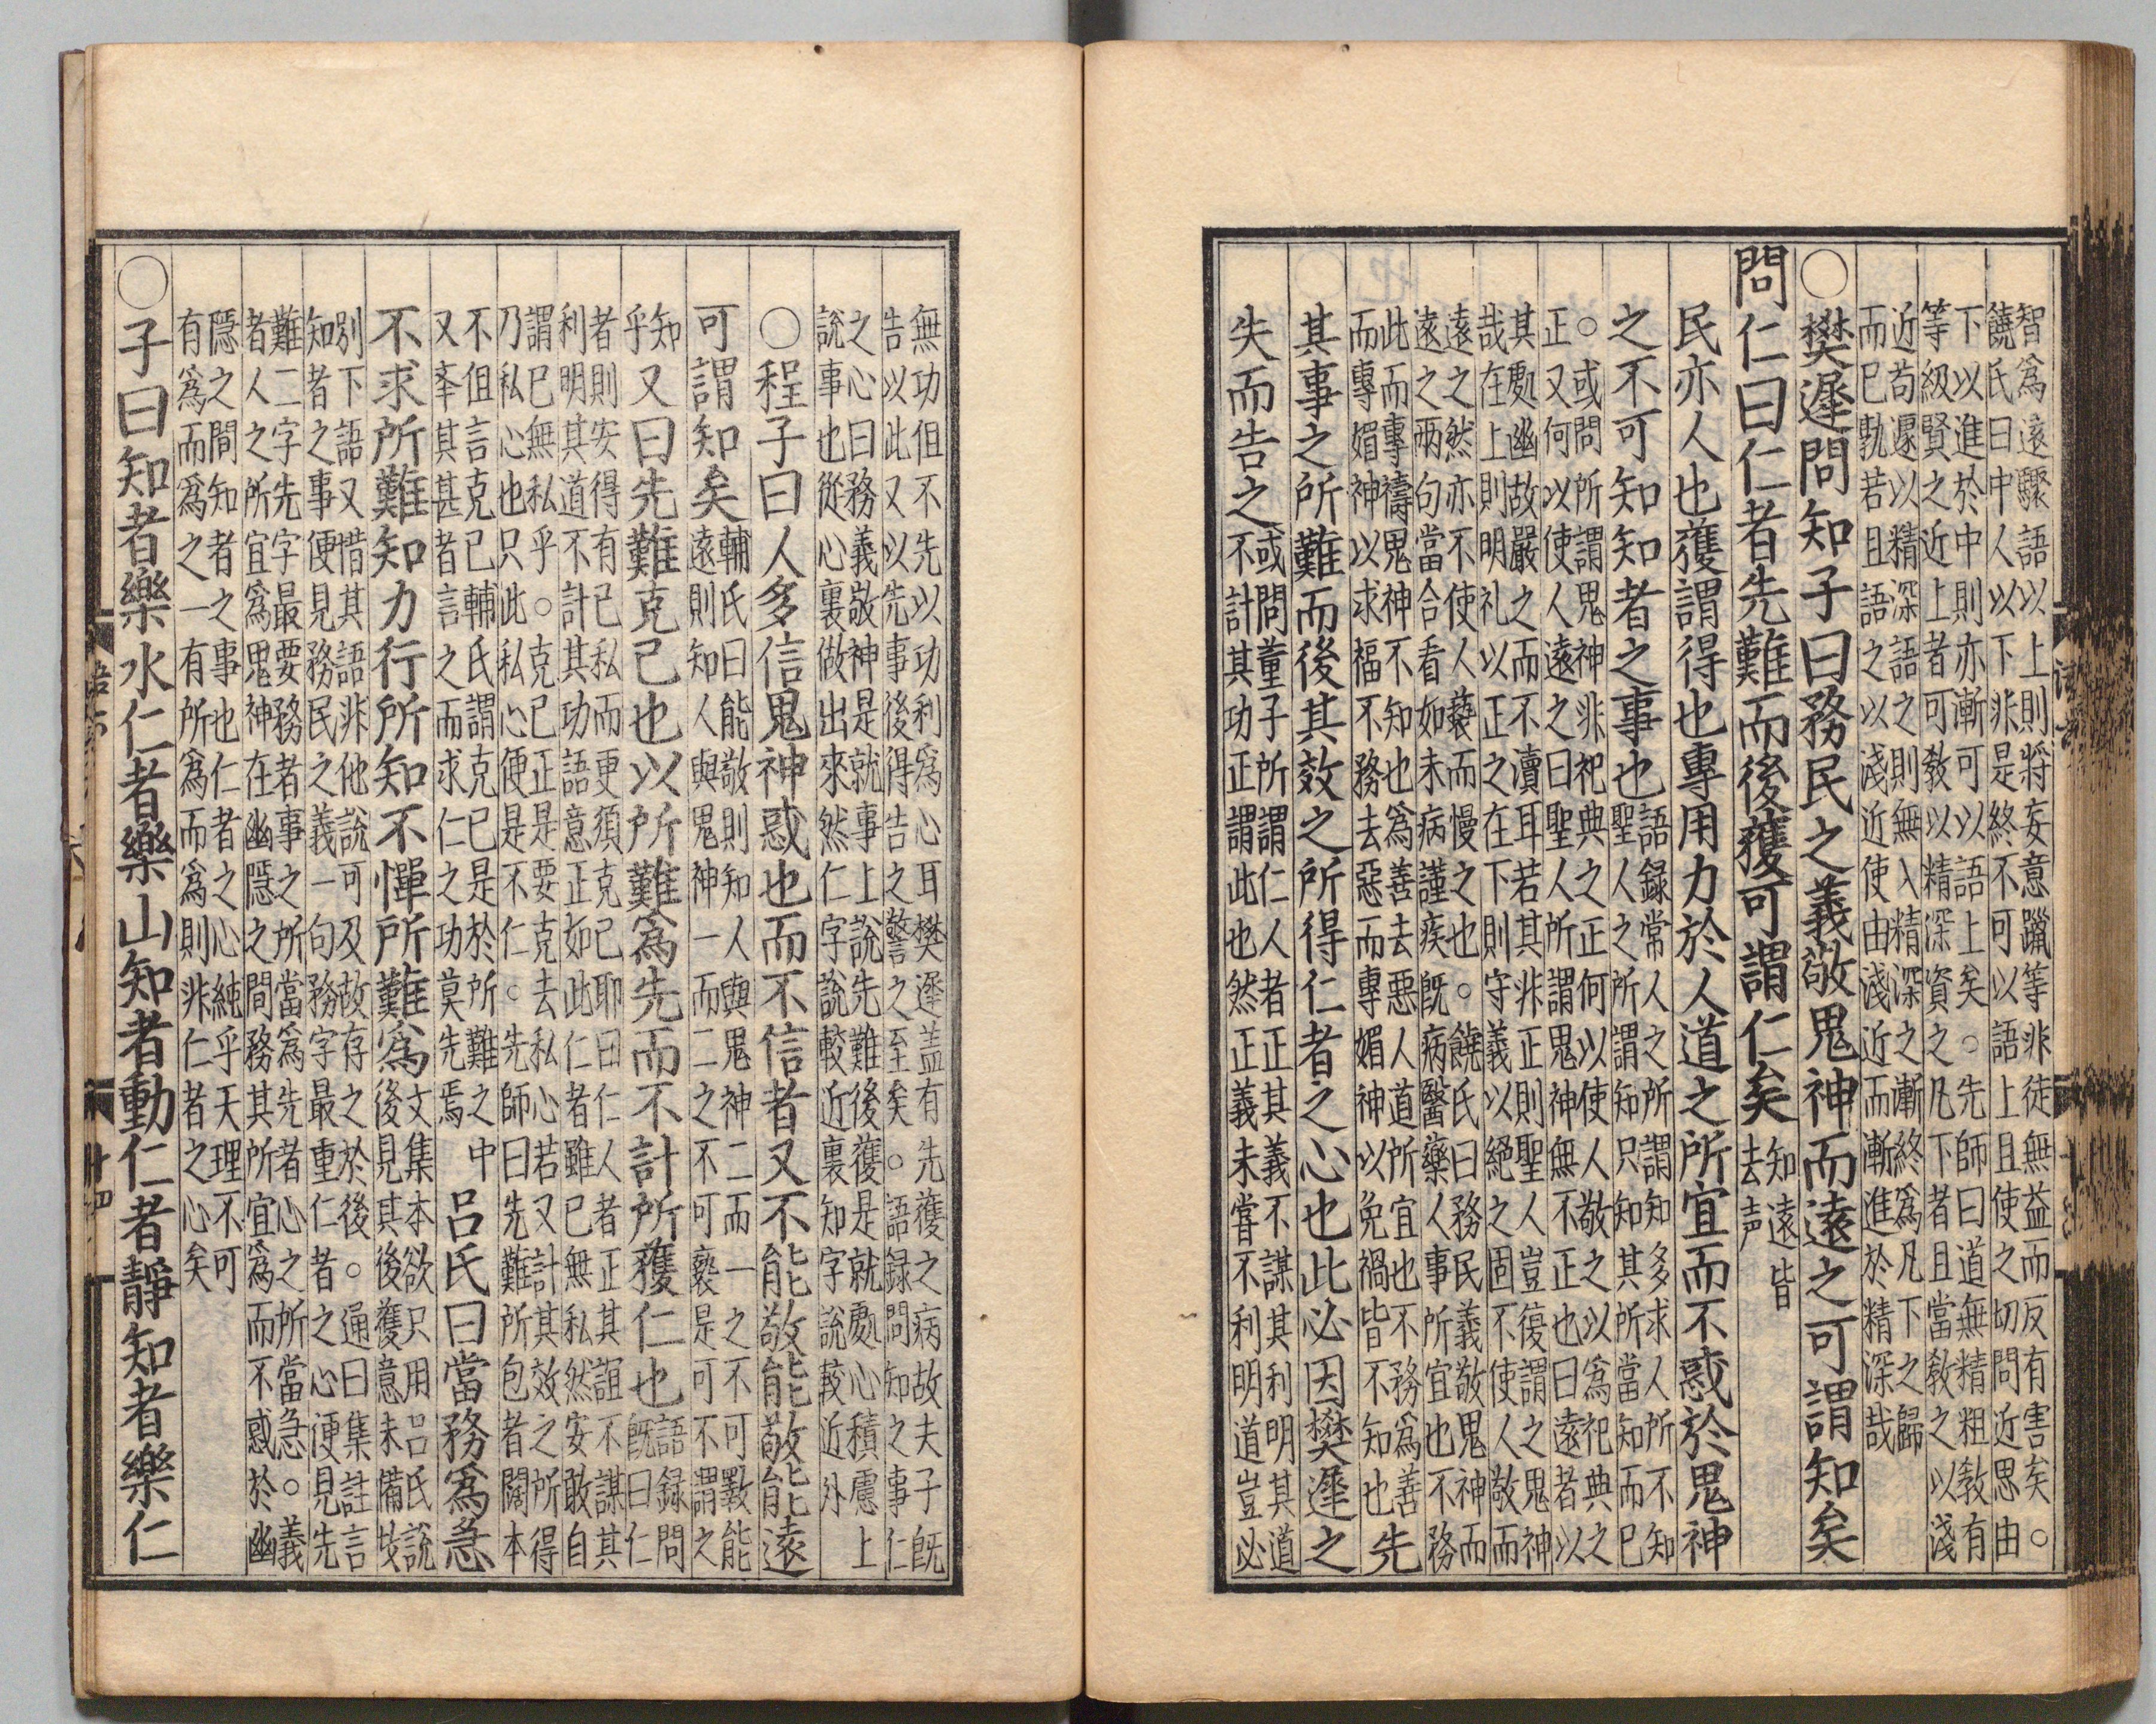 智爲遠驟語以上則將妄意躐等非徒無益而反有害矣○
饒氏曰中人以下非是終不可以語上且使之切問近思由
下以進於中則亦漸可以語上矣○先師曰道無精粗教有
等級賢之近上者可教以精深資之凡下者且當教之以淺
近苟遽以精深語之則無入精深之漸終爲凡下之歸
而已孰若且語之以淺近使由淺近而漸進於精深哉
○樊遲問知子曰務民之義敬鬼神而遠之可謂知矣
問仁曰仁者先難而後獲可謂仁矣知遠皆
去声
民亦人也獲謂得也專用力於人道之所宜而不惑於鬼神
之不可知知者之事也語録常人之所謂知多求人所不知
聖人之所謂知只知其所當知而已
○或問所謂鬼神非祀典之正何以使人敬之以爲祀典之
正又何以使人遠之曰聖人所謂鬼神無不正也曰遠者以
其處幽故嚴之而不瀆耳若其非正則聖人豈復謂之鬼神
哉在上則明礼以正之在下則守義以絕之固不使人敬而
遠之然亦不使人褻而慢之也○饒氏曰務民義敬鬼神而
遠之兩句當合看如未病謹疾既病醫藥人事所宜也不務
此而專禱鬼神不知也爲善去惡人道所宜也不務爲善
而專媚神以求福不務去惡而專媚神以免禍皆不知也先
其事之所難而後其效之所得仁者之心也此必因樊遲之
失而告之或問董子所謂仁人者正其義不謀其利明其道
不計其功正謂此也然正義未嘗不利明道豈必
無功但不先以功利爲心耳樊遲盖有先獲之病故夫子既
告以此又以先事後得告之警之至矣○語録問知之事仁
之心曰務義敬神是就事上說先難後獲是就處心積慮上
說事也從心裏做出來然仁字說較近裏知字說較近外
○程子曰人多信鬼神惑也而不信者又不能敬能敬能遠
可謂知矣輔氏曰能敬則知人與鬼神二而一之不可斁能
遠則知人與鬼神一而二之不可褻是可不謂之
知
乎又曰先難克己也以所難爲先而不計所獲仁也語録問
既曰仁
者則安得有已私而更須克已耶曰仁人者正其誼不謀其
利明其道不計其功語意正如此仁者雖已無私然安敢自
謂已無私乎○克已正是要克去私心若又計其效之所得
乃私心也只此私心便是不仁○先師曰先難所包者闊本
不但言克已輔氏謂克已是於所難之中
又幸其甚者言之而求仁之功莫先焉呂氏曰當務爲急
不求所難知力行所知不憚所難爲文集本欲只用呂氏說
後見其後獲意未備故
別下語又惜其語非他說可及故存之於後○通曰集註言
知者之事便見務民之義一句務字最重仁者之心便見先
難二字先字最要務者事之所當爲先者心之所當急○義
者人之所宜爲鬼神在幽隱之間務其所宜爲而不惑於幽
隱之間知者之事也仁者之心純乎天理不可
有爲而爲之一有所爲而爲則非仁者之心矣
○子曰知者樂水仁者樂山知者動仁者靜知者樂仁